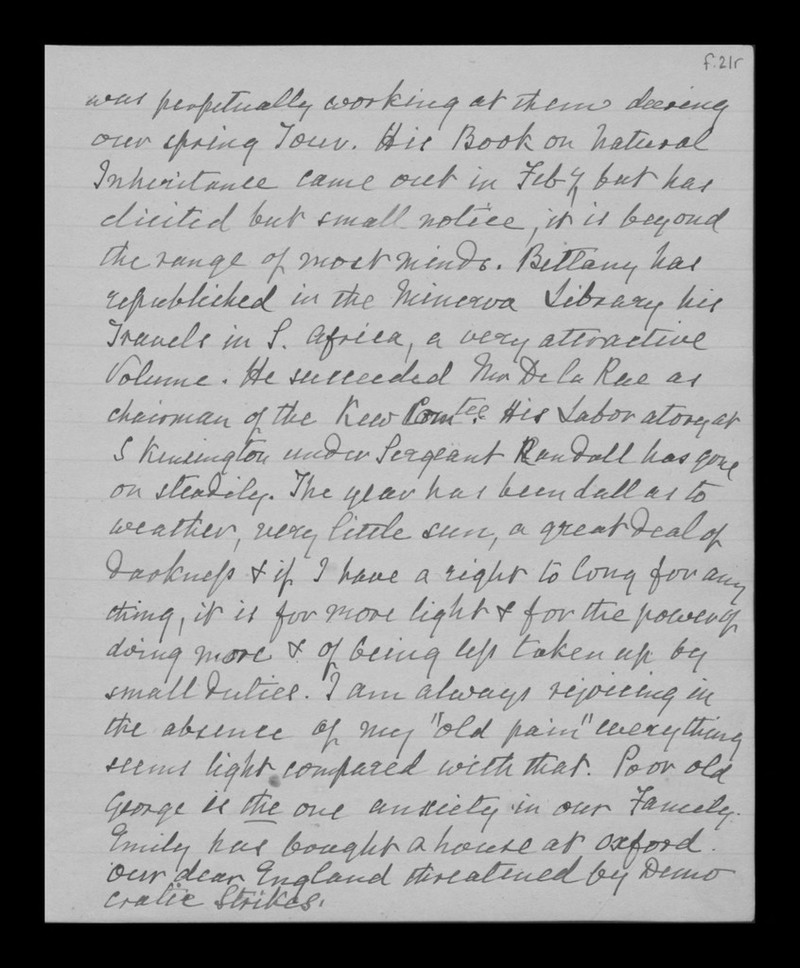 f.21r
was perpetually working at them during
our spring Tour. His Book on Natural
Inheritance came out in Feby but has
elicited but small notice, it is beyond
the range of most minds. Bettany has
republished in the Minerva Library his
Travels in S. Africa, a very attractive
Volume. He succeeded Mr De la Rue as
chairman of the Kew Comtee. His Laboratory at
S Kensington under Sergeant Randall has gone
on steadily. The year has been dull as to
weather, very little sun, a great deal of
darkness & if I have a right to long for any
thing, it is for more light & for the power of
doing more & of being less taken up by
small duties. I am always rejoicing in
the absence of my "old pain" everything
seems light compared with that. Poor old
George is the one anxiety in our Family.
Emily has bought a house at Oxford.
Our dear England threatened by Demo
cratic Strikes.